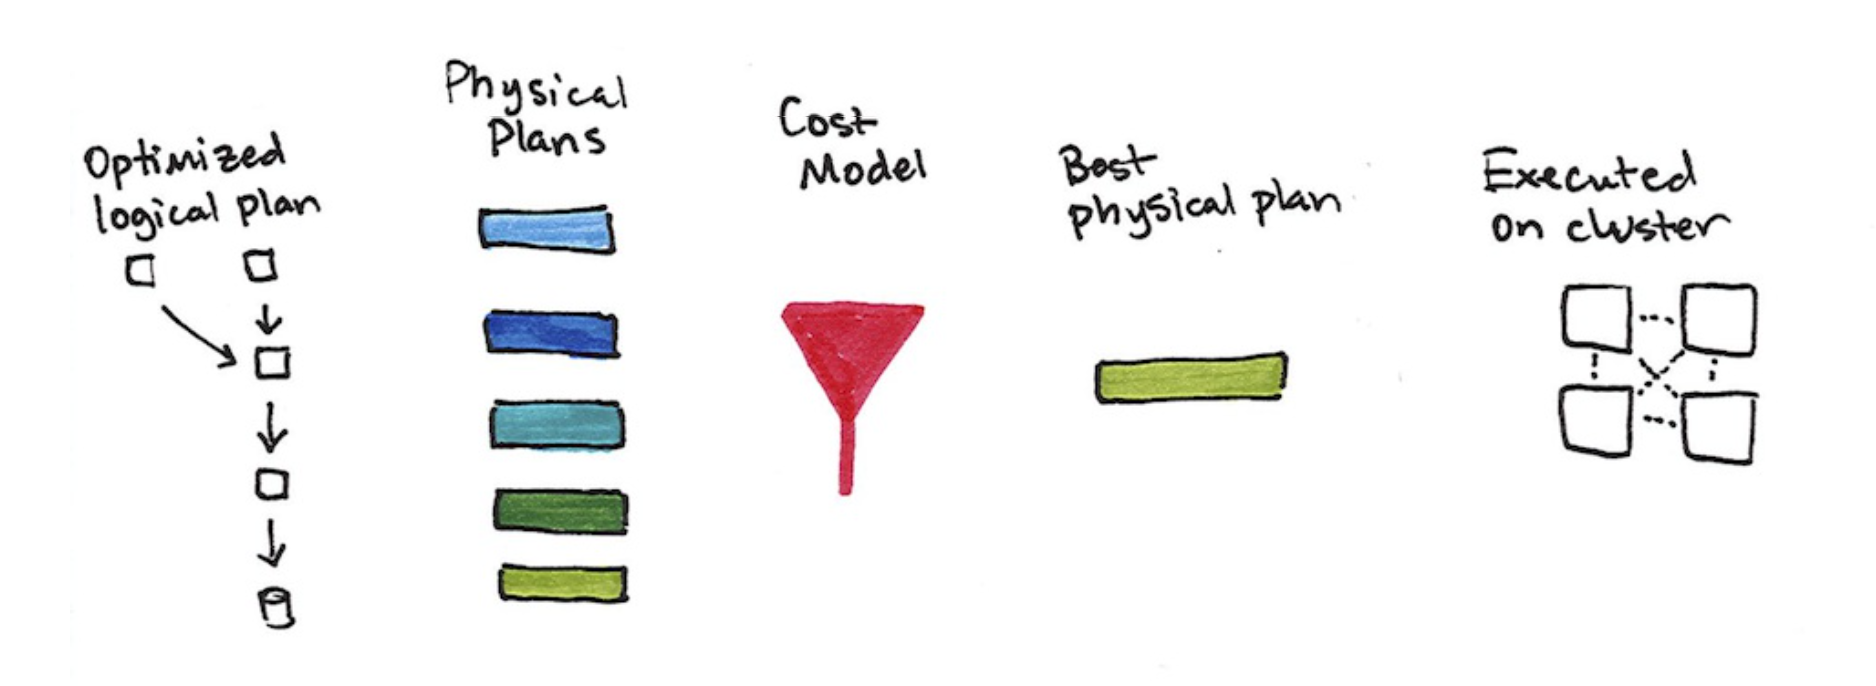 Optimized
logical plan
Physical
Plans
Cost
Model
Best
physical plan
Executed
on cluster